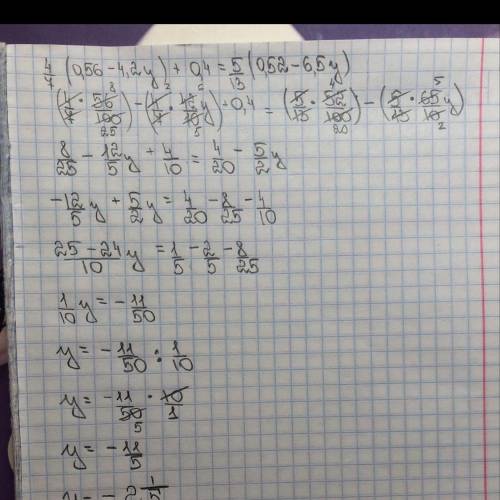 4/7 (0,56 - 4,2y) + 0,4 = 5/13 (0,52 - 6,5y)
(4/7 · 56/100) - (4/7 · 42/10 y) + 0,4 = (5/13 · 52/100) - (5/13 · 65/10 y)
8/25 - 12/5 y + 4/10 = 4/20 - 5/2 y
-12/5 y + 5/2 y = 4/20 - 8/25 - 4/10
25 - 24/10 y = 1/5 - 2/5 - 8/25
1/10 y = - 11/50
y = - 11/50 : 1/10
y = - 11/50 · 10/1
y = - 11/5
y = - 2 1/5